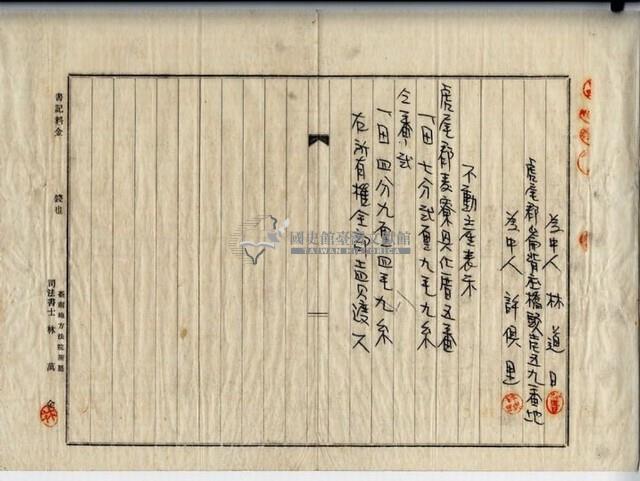 為中人 林道日
虎尾郡崙背庄橋頭五九番地
為中人 許俱里
不動產表示
虎尾郡麥寮 五番
一田七分貳厘九毛九糸
仝番ノ貳
一田四分九厘四毛九糸
右所有權全部賣渡ス
臺南地方法院所屬
司法書士 林萬金
書記料金 錢也
國史館臺灣文獻館
TAIWAN HISTORICA